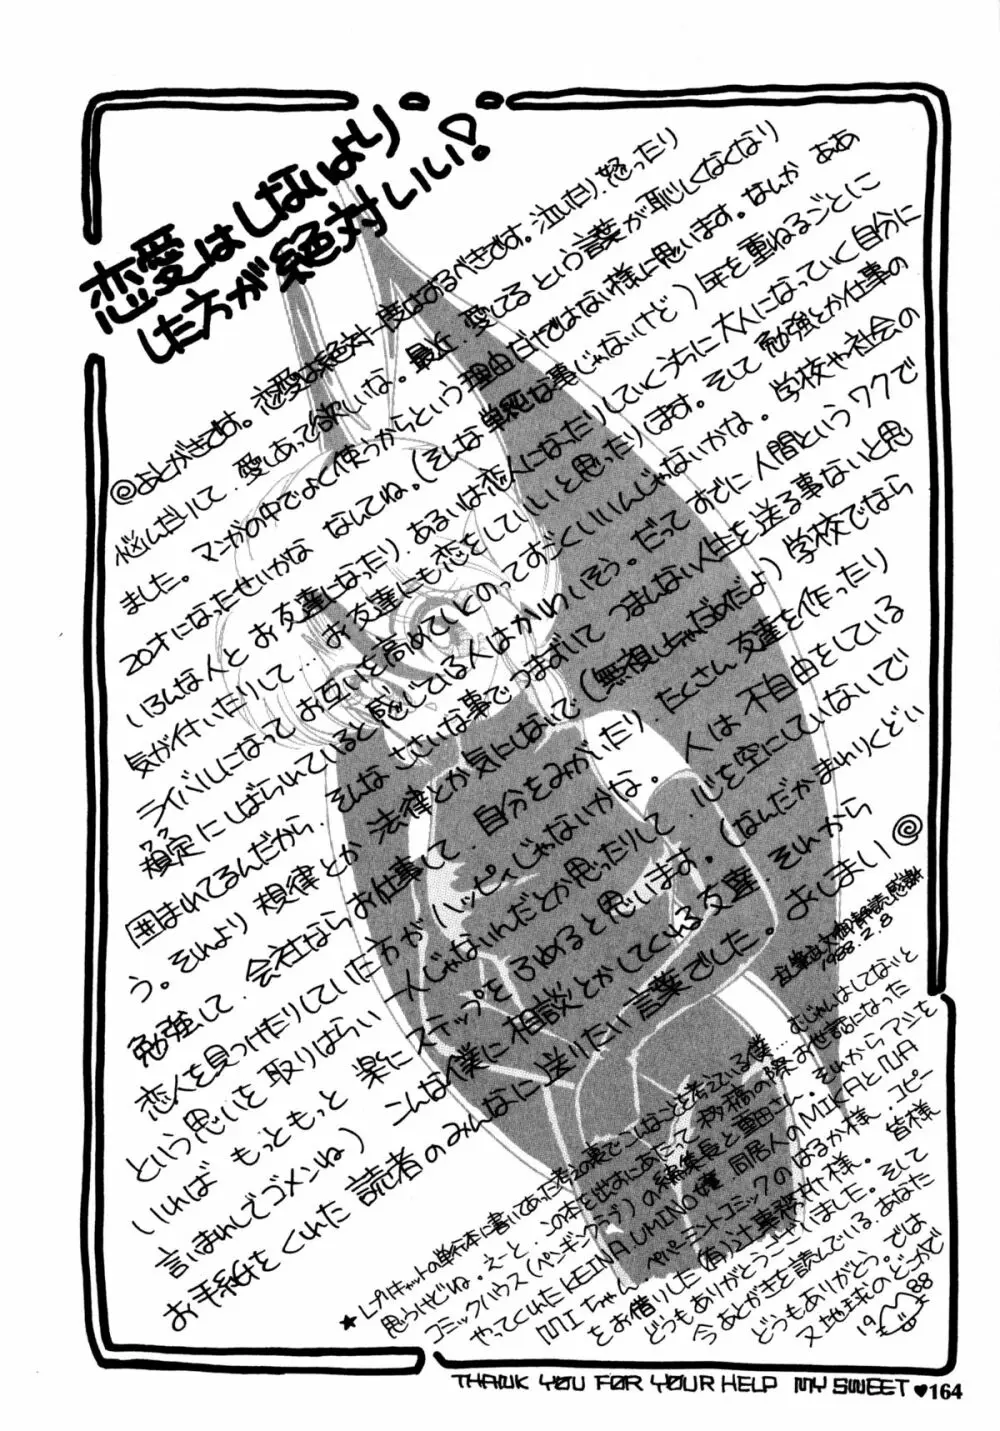 恋愛はしないより
した方が絶対いい!
@あとがきです。恋愛は絶対一度はするべきです。泣いたり、怒ったり
悩んだりして、愛しあって欲しいな。最近、愛してるという言葉が恥しくなくなり
ました。マンガの中でよく使うからという理由だけではない様に思います。なんか ああ
20才になったせいかな なんてね。(そんな単純な事じゃないけど)年を重ねるごとに
いろんな人とお友達になったり、あるいは恋人になったりしていくうちに大人になっていく自分に
気が付いたりして…お友達にも恋をしていいと思ったりします。そして勉強とか仕事の
ライバルになってお互いを高めていくのってすごくいいんじゃないかな。学校や社会の
規定にしばられていると感じている人はかわいそう。だってすでに人間というワクで
囲まれてるんだから、そんなささいな事でつまずいてつまんない人生を送る事ないと思
う。それより規律とか法律とか気にしないで(無視しちゃだめだよ)学校でなら
勉強して、会社ならお仕事して、自分をみがいたり、たくさん友達を作ったり
恋人を見つけたりしていた方がハッピィじゃないかな。人は不自由をしている
という思いを取りはらい 一人じゃないんだとか思ったりして、心を空にしていないで
いれば もっともっと 楽にステップをふめると思います。(なんだかまわりくどい
言いまわしでゴメンね) こんな僕に相談とかしてくれる友達、それから
お手紙をくれた 読者のみんなに送りたい言葉でした。おしまい@
1988.2.8
★レプリキャットの単行本に書いてあった考えの事でこんなことを考えている僕… むじゅんはしてないと
思うけどね。えーと、この本を出すにあたって 移稿の際お世話になった
コミックハウス(ペンギンクラブ)の編集長と重田さん、それからアシを
やってくれたKEINA UMINO嬢、同居人のMIKAとNA
MIちゃん、ペパーミントコミックのはるか様、コピー
をお借りした(有)辻事務所様。皆様
どうもありがとうございました。そして
今あとがきを読んでいる、あなた
どうもありがとう。では
又地球のどこかで
1988
THANK YOU FOR YOUR HELP MY SWEET ♥164